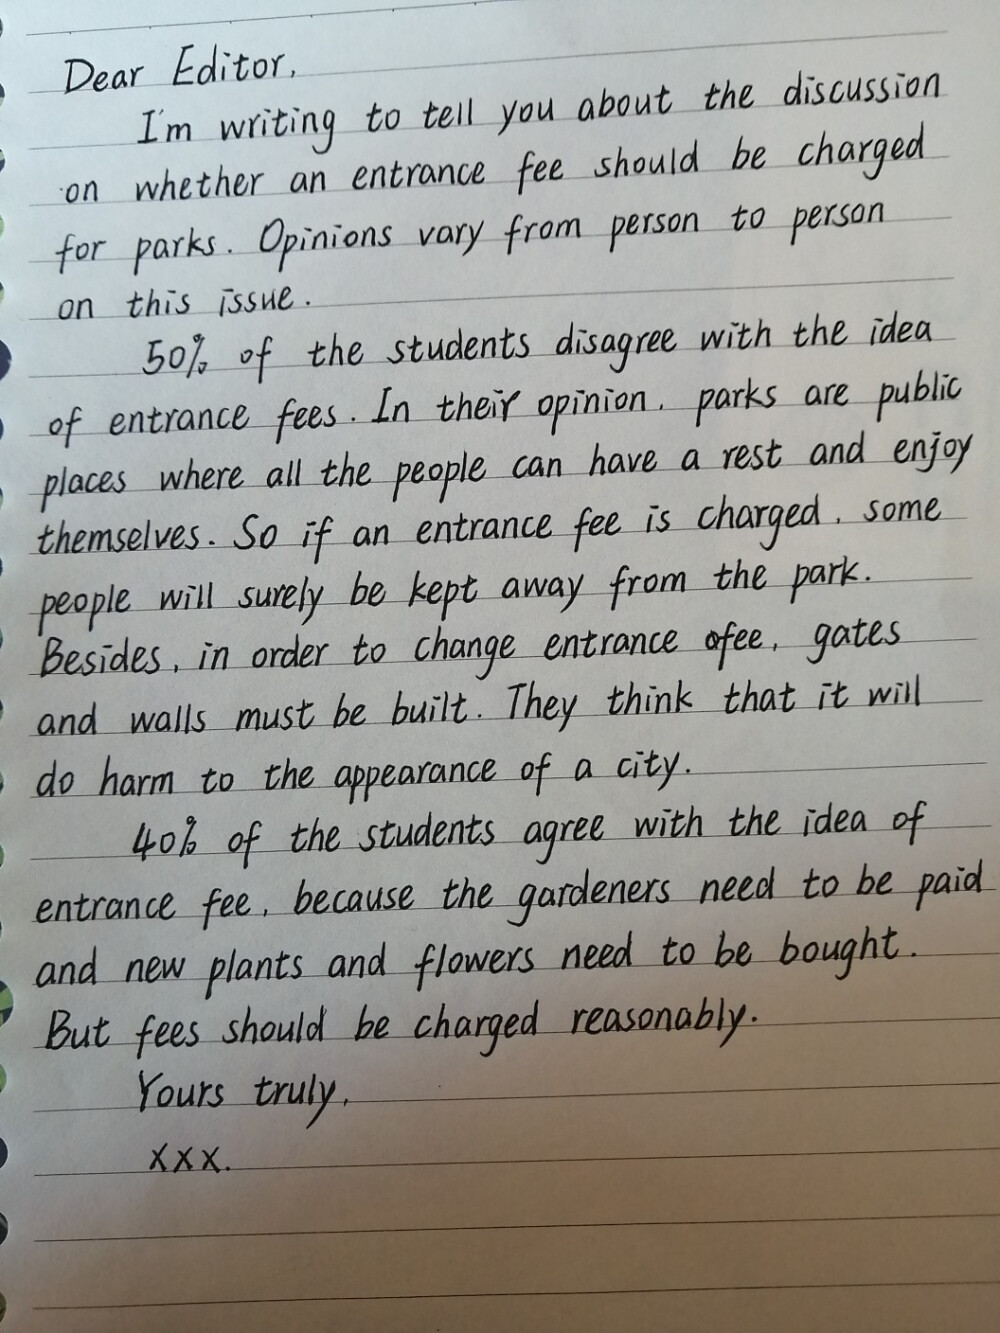 Dear Editor,
I'm writing to tell you about the discussion
on whether an entrance fee should be charged
for parks. Opinions vary from person to person
on this issue.
50% of the students disagree with the idea
of entrance fees. In their opinion, parks are public
places where all the people can have a rest and enjoy
themselves. So if an entrance fee is charged, some
people will surely be kept away from the park.
Besides, in order to change entrance ofee, gates
and walls must be built. They think that it will
do harm to the appearance of a city.
40% of the students agree with the idea of
entrance fee, because the gardeners need to be paid
and new plants and flowers need to be bought.
But fees should be charged reasonably.
Yours truly,
XXX.